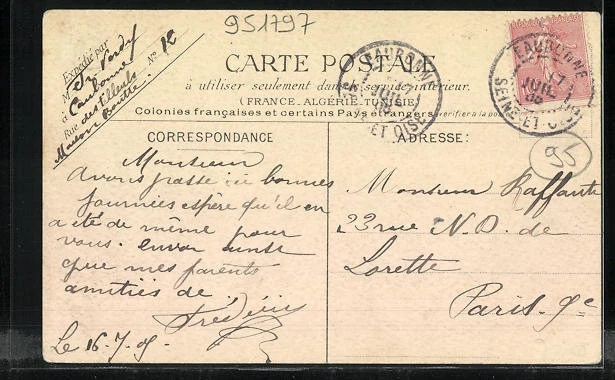 951797
Expédié par
M
à Eaubonne
N° 12
Rue des Tilleuls
CARTE POSTALE
à utiliser seulement dans le service intérieur.
(FRANCE. ALGÉRIE. TUNISIE)
Colonies françaises et certains Pays étrangers (vérifier à la poste)
EAUBONNE
ET OISE
EAUBONNE
17
JUIL
SEINE-ET-OISE
95
CORRESPONDANCE
Monsieur
Avons passé ici bonnes
journées espère qu'il en
a été de même pour
vous.
que mes parents
amitiés de
Frédéric
Le 16-7-05
ADRESSE:
Monsieur Raffaute
23 rue N. D. de
Lorette
Paris. 9e